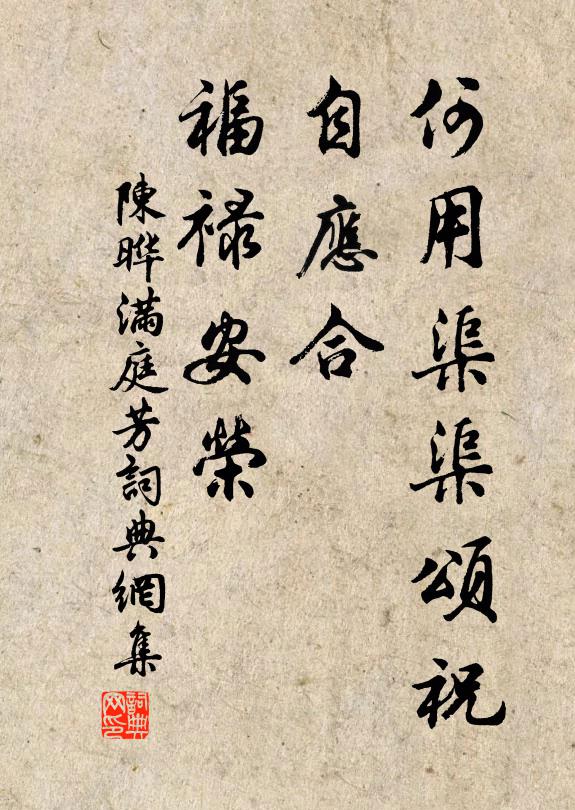 何用渠渠頌祝
自應合
福祿安榮
陳晔满庭芳詞典網集
詞典
网印